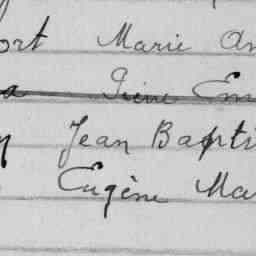 ort Marie An
a Pierre Em
Jean Bapti
Eugène Ma